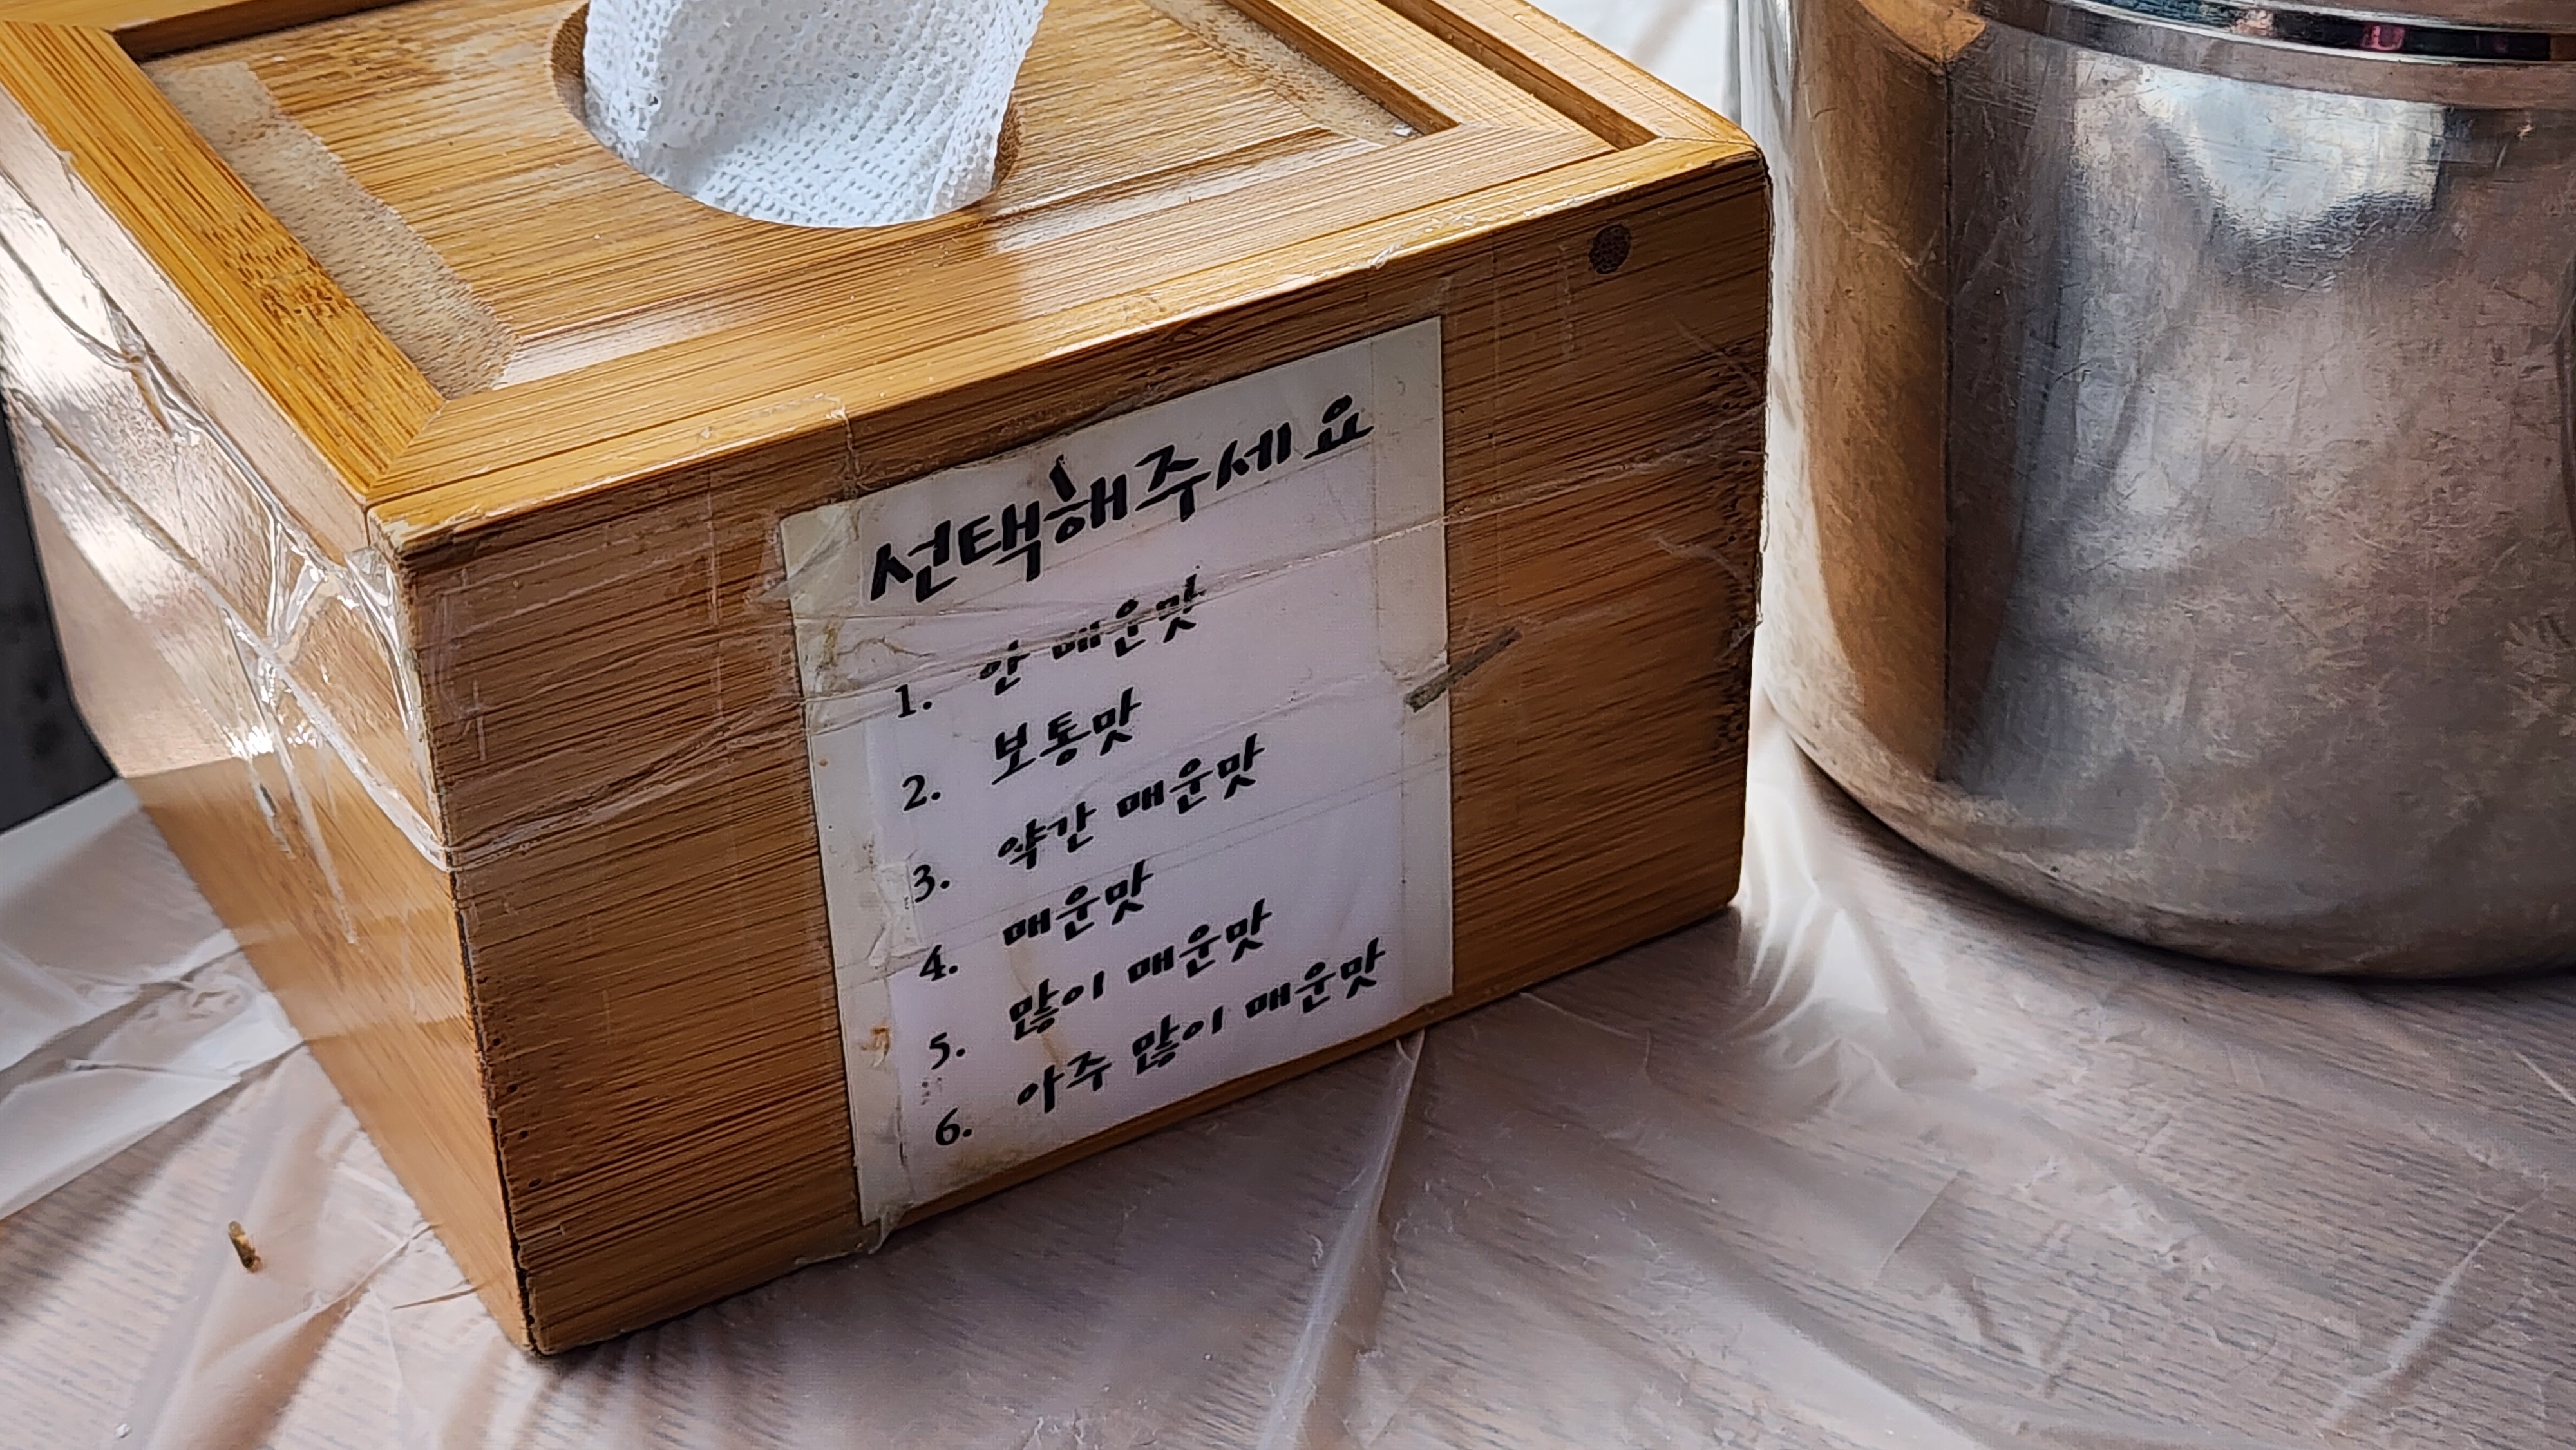 선택해주세요
1. 안 매운맛
2. 보통맛
3. 약간 매운맛
4. 매운맛
5. 많이 매운맛
6. 아주 많이 매운맛